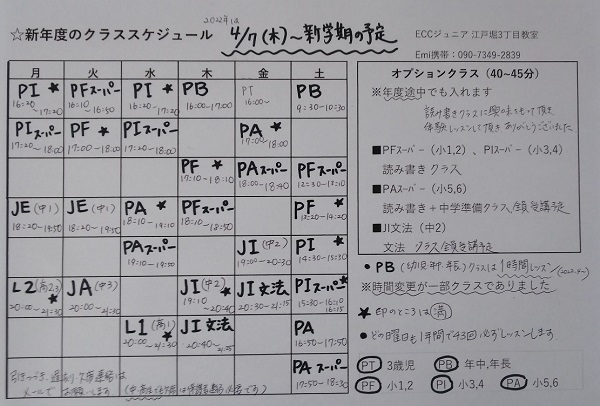 2022年度
☆新年度のクラススケジュール 4/7(木)~新学期の予定
ECCジュニア 江戸堀3丁目教室
Emi携帯:090-7349-2839
月 火 水 木 金 土
PI ★ PFスーパー PI ★ PB PT PB
16:20~17:20 16:10~16:50 16:20~17:20 16:00~17:00 16:00~ 9:30~10:30
PIスーパー PF ★ PIスーパー PA ★
17:20~18:00 17:00~18:00 17:20~18:00 17:00~18:00
PF ★ PAスーパー PFスーパー
17:10~18:10 18:00~18:40 12:30~13:10
JE(中1) JE(中1) PA ★ PFスーパー PF ★
18:20~19:50 18:20~19:50 18:10~19:10 18:10~18:50 13:20~14:20
PAスーパー JI(中2) PI ★
19:10~19:50 19:00~20:30 14:30~15:30
L2(高2,3) ★ JA(中3) JI(中2) ★ JI文法 PIスーパー ★
20:00~21:30 20:00~21:30 19:10~20:40 20:30~21:15 15:30~16:10
L1(高1) ★ JI文法 PA
20:00~21:30 20:40~21:25 16:50~17:50
PAスーパー
17:50~18:30
オプションクラス(40~45分)
※年度途中でも入れます
読み書きクラスに興味をもって頂き
体験レッスンして頂き ありがとうございました
■PFスーパー(小1,2)、PIスーパー(小3,4)
読み書きクラス
■PAスーパー(小5,6)
読み書き+中学準備クラス全員受講予定
■JI文法(中2)
文法 クラス全員受講予定
● PB(幼児年中,年長)クラスは1時間レッスン
※時間変更が一部クラスでありました
● ★印のところは満
● どの曜日も1年間で43回必ずレッスンします
PT 3歳児 PB 年中,年長
PF 小1,2 PI 小3,4 PA 小5,6